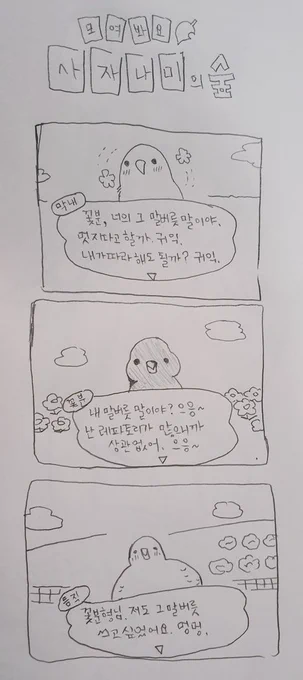 모여봐요
사자나미의 숲
막내
꽃분, 너의 그 말버릇 말이야.
멋지다고 할까. 귀익.
내가 따라해도 될까? 귀익.
꽃분
내 말버릇 말이야? 으응~
난 레파토리가 많으니까
상관없어. 으응~
꽃분형님. 저도 그 말버릇
쓰고싶었어요. 멍멍.